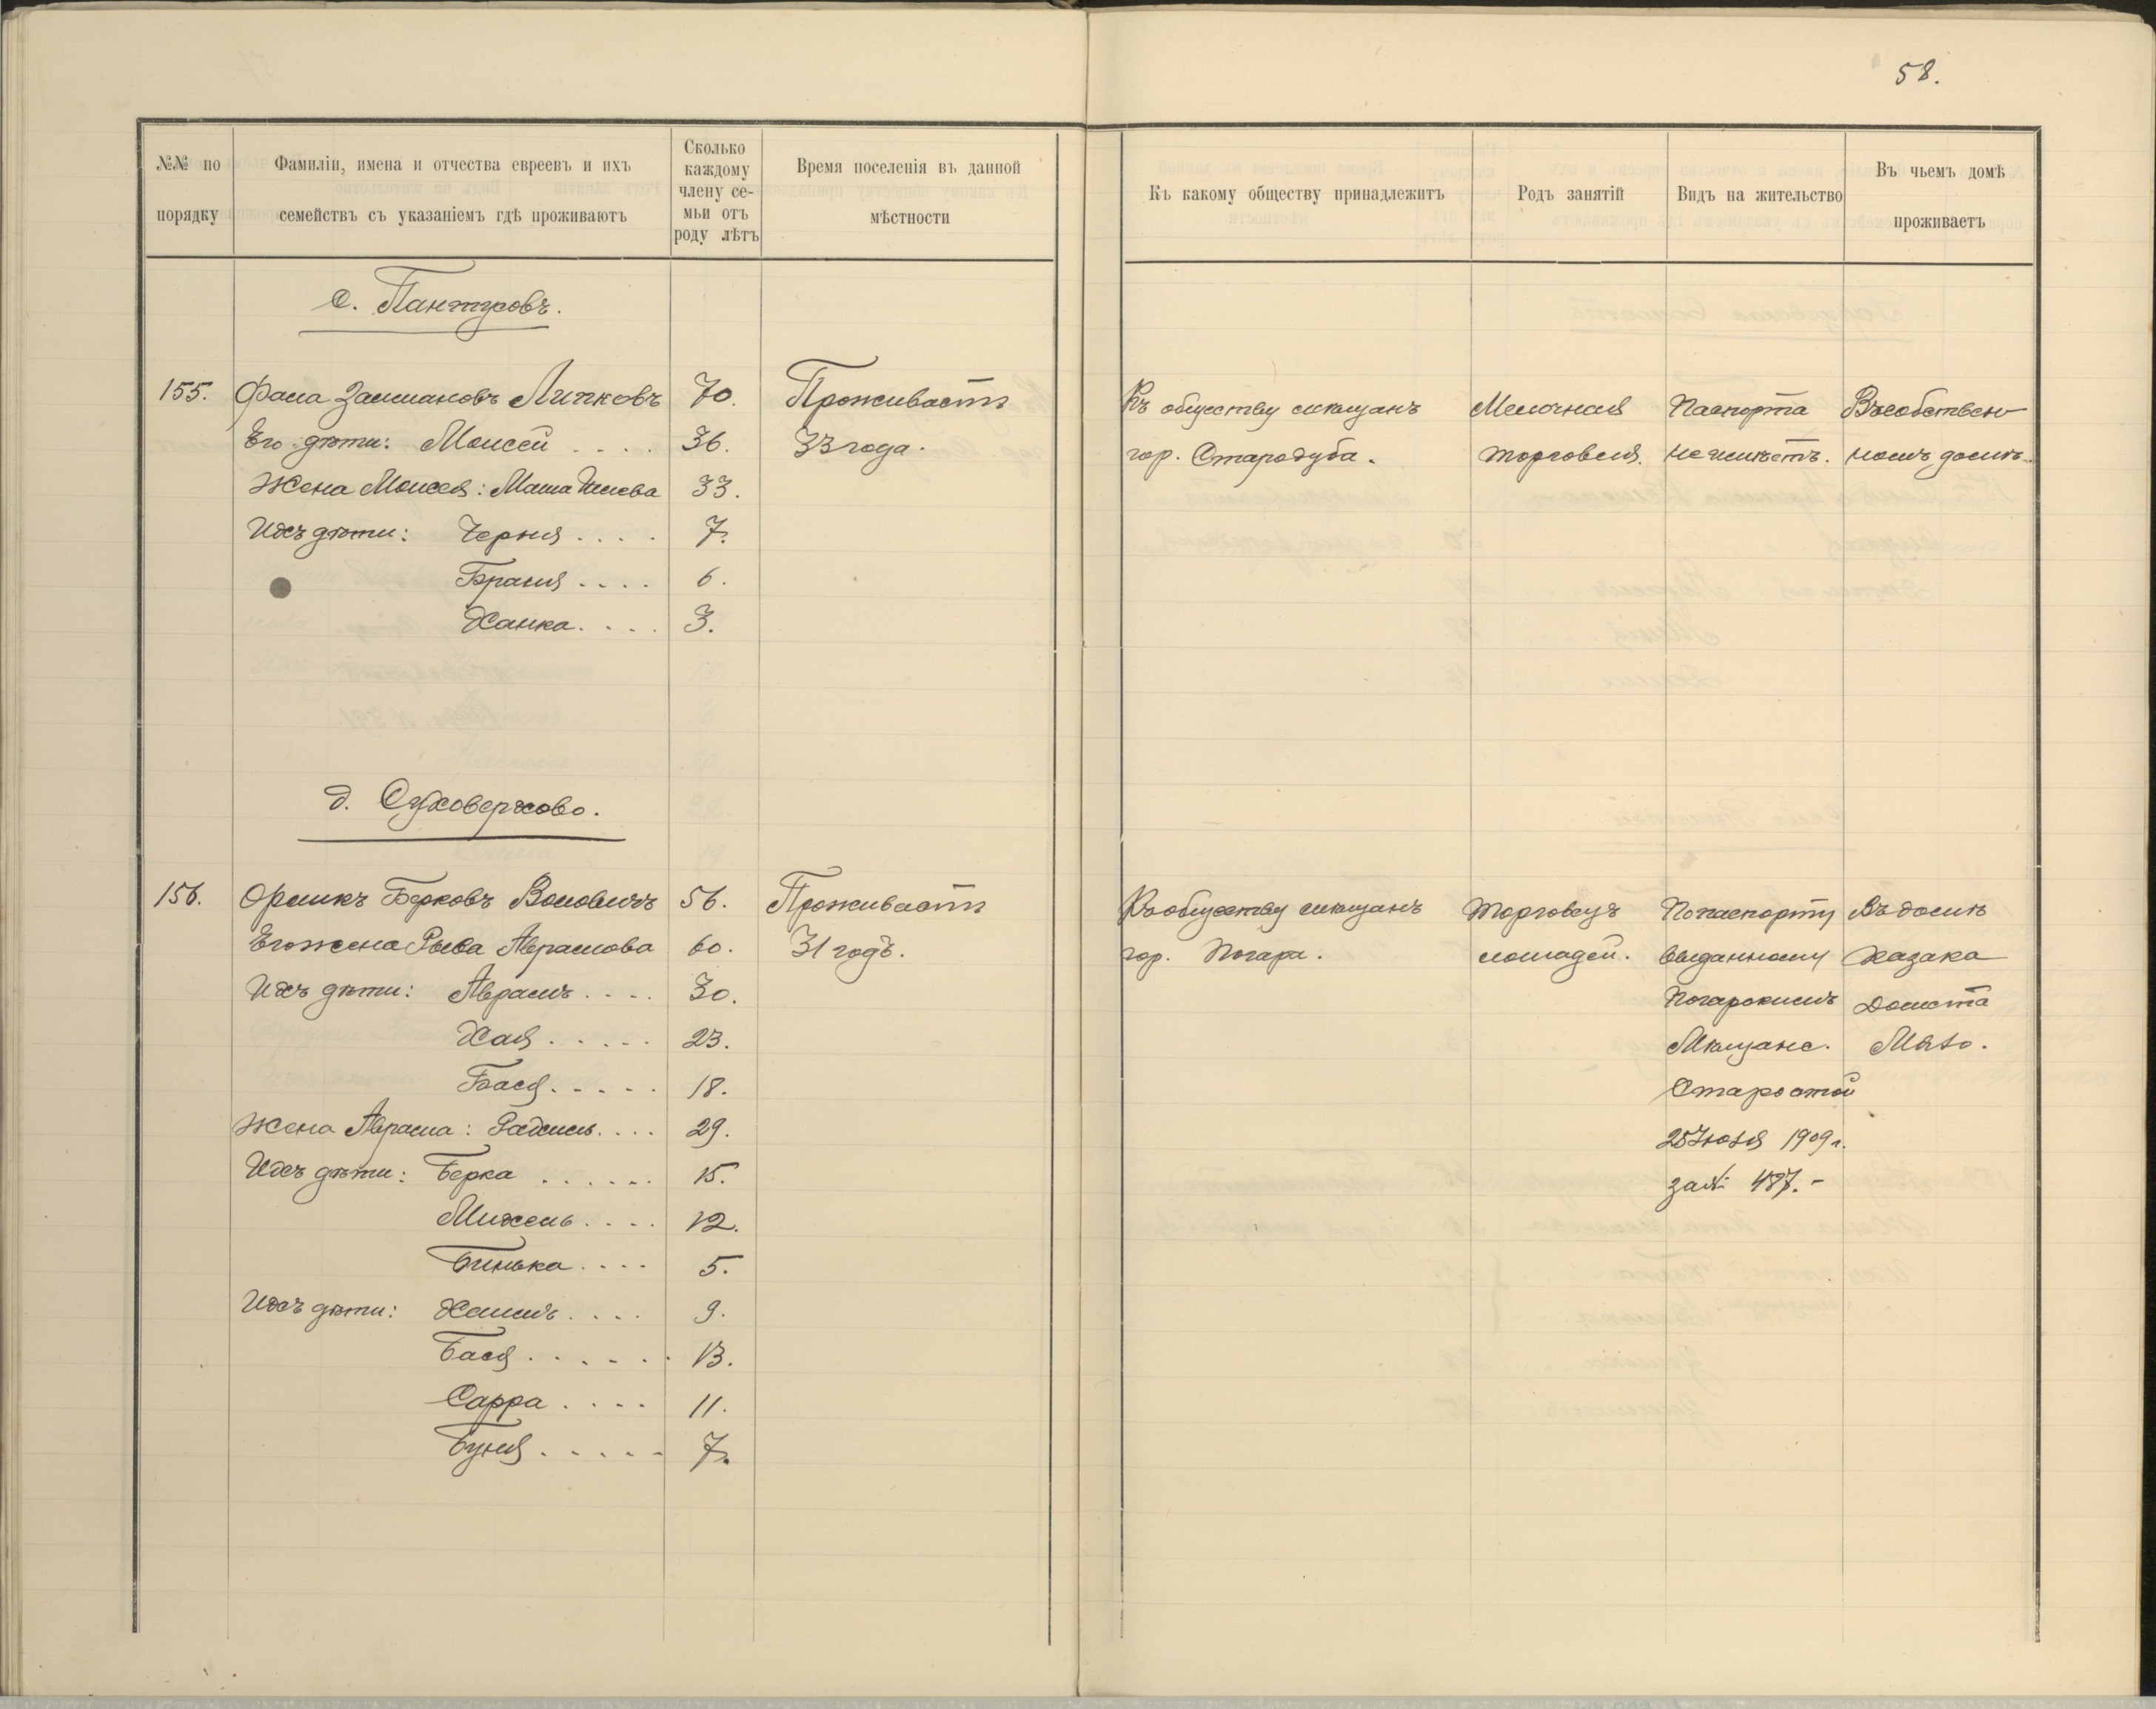 58.
№№ по порядку
Фамиліи, имена и отчества евреевъ и ихъ семействъ съ указаніемъ гдѣ проживаютъ
Сколько каждому члену се-мьи отъ роду лѣтъ
Время поселенія въ данной мѣстности
Къ какому обществу принадлежитъ
Родъ занятій
Видъ на жительство
Въ чьемъ домѣ проживаетъ
с. Пантусовъ.
155. Залмановъ Липковъ 70. Проживаетъ Къ обществу мѣщанъ Мелочная Паспорта Въ собствен-
Его дѣти: Моисей .... 36. 33 года. гор. Стародуба. торговля. не имѣетъ. номъ домѣ.
Жена Моисея: Маша 33.
Ихъ дѣти: Черня .... 7.
Браня .... 6.
Ханка .... 3.
д. Суховерхово.
156. Орликъ Берковъ Воловичъ 56. Проживаетъ Къ обществу мѣщанъ Торговецъ По паспорту Въ домѣ
Его жена Рыва Абрамова 60. 31 годъ. гор. Погара. лошадей. выданному Казака
Ихъ дѣти: Абрамъ .... 30. Погарскимъ
Хая ..... 23. Мѣщанс.
Бася ..... 18. Старостой
Жена Абрама: .... 29. 25 Іюля 1909 г.
Ихъ дѣти: Берка ...... 15. за № 487.-
Михель .... 12.
Бинька .... 5.
Ихъ дѣти: Хаимъ .... 9.
Бася ...... 13.
Сарра .... 11.
Буня ..... 7.